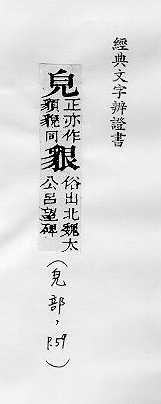 經典文字辨證書
皃
正亦作
䫉貌同
貇
俗出北魏太
公呂望碑
(皃部, P.59)